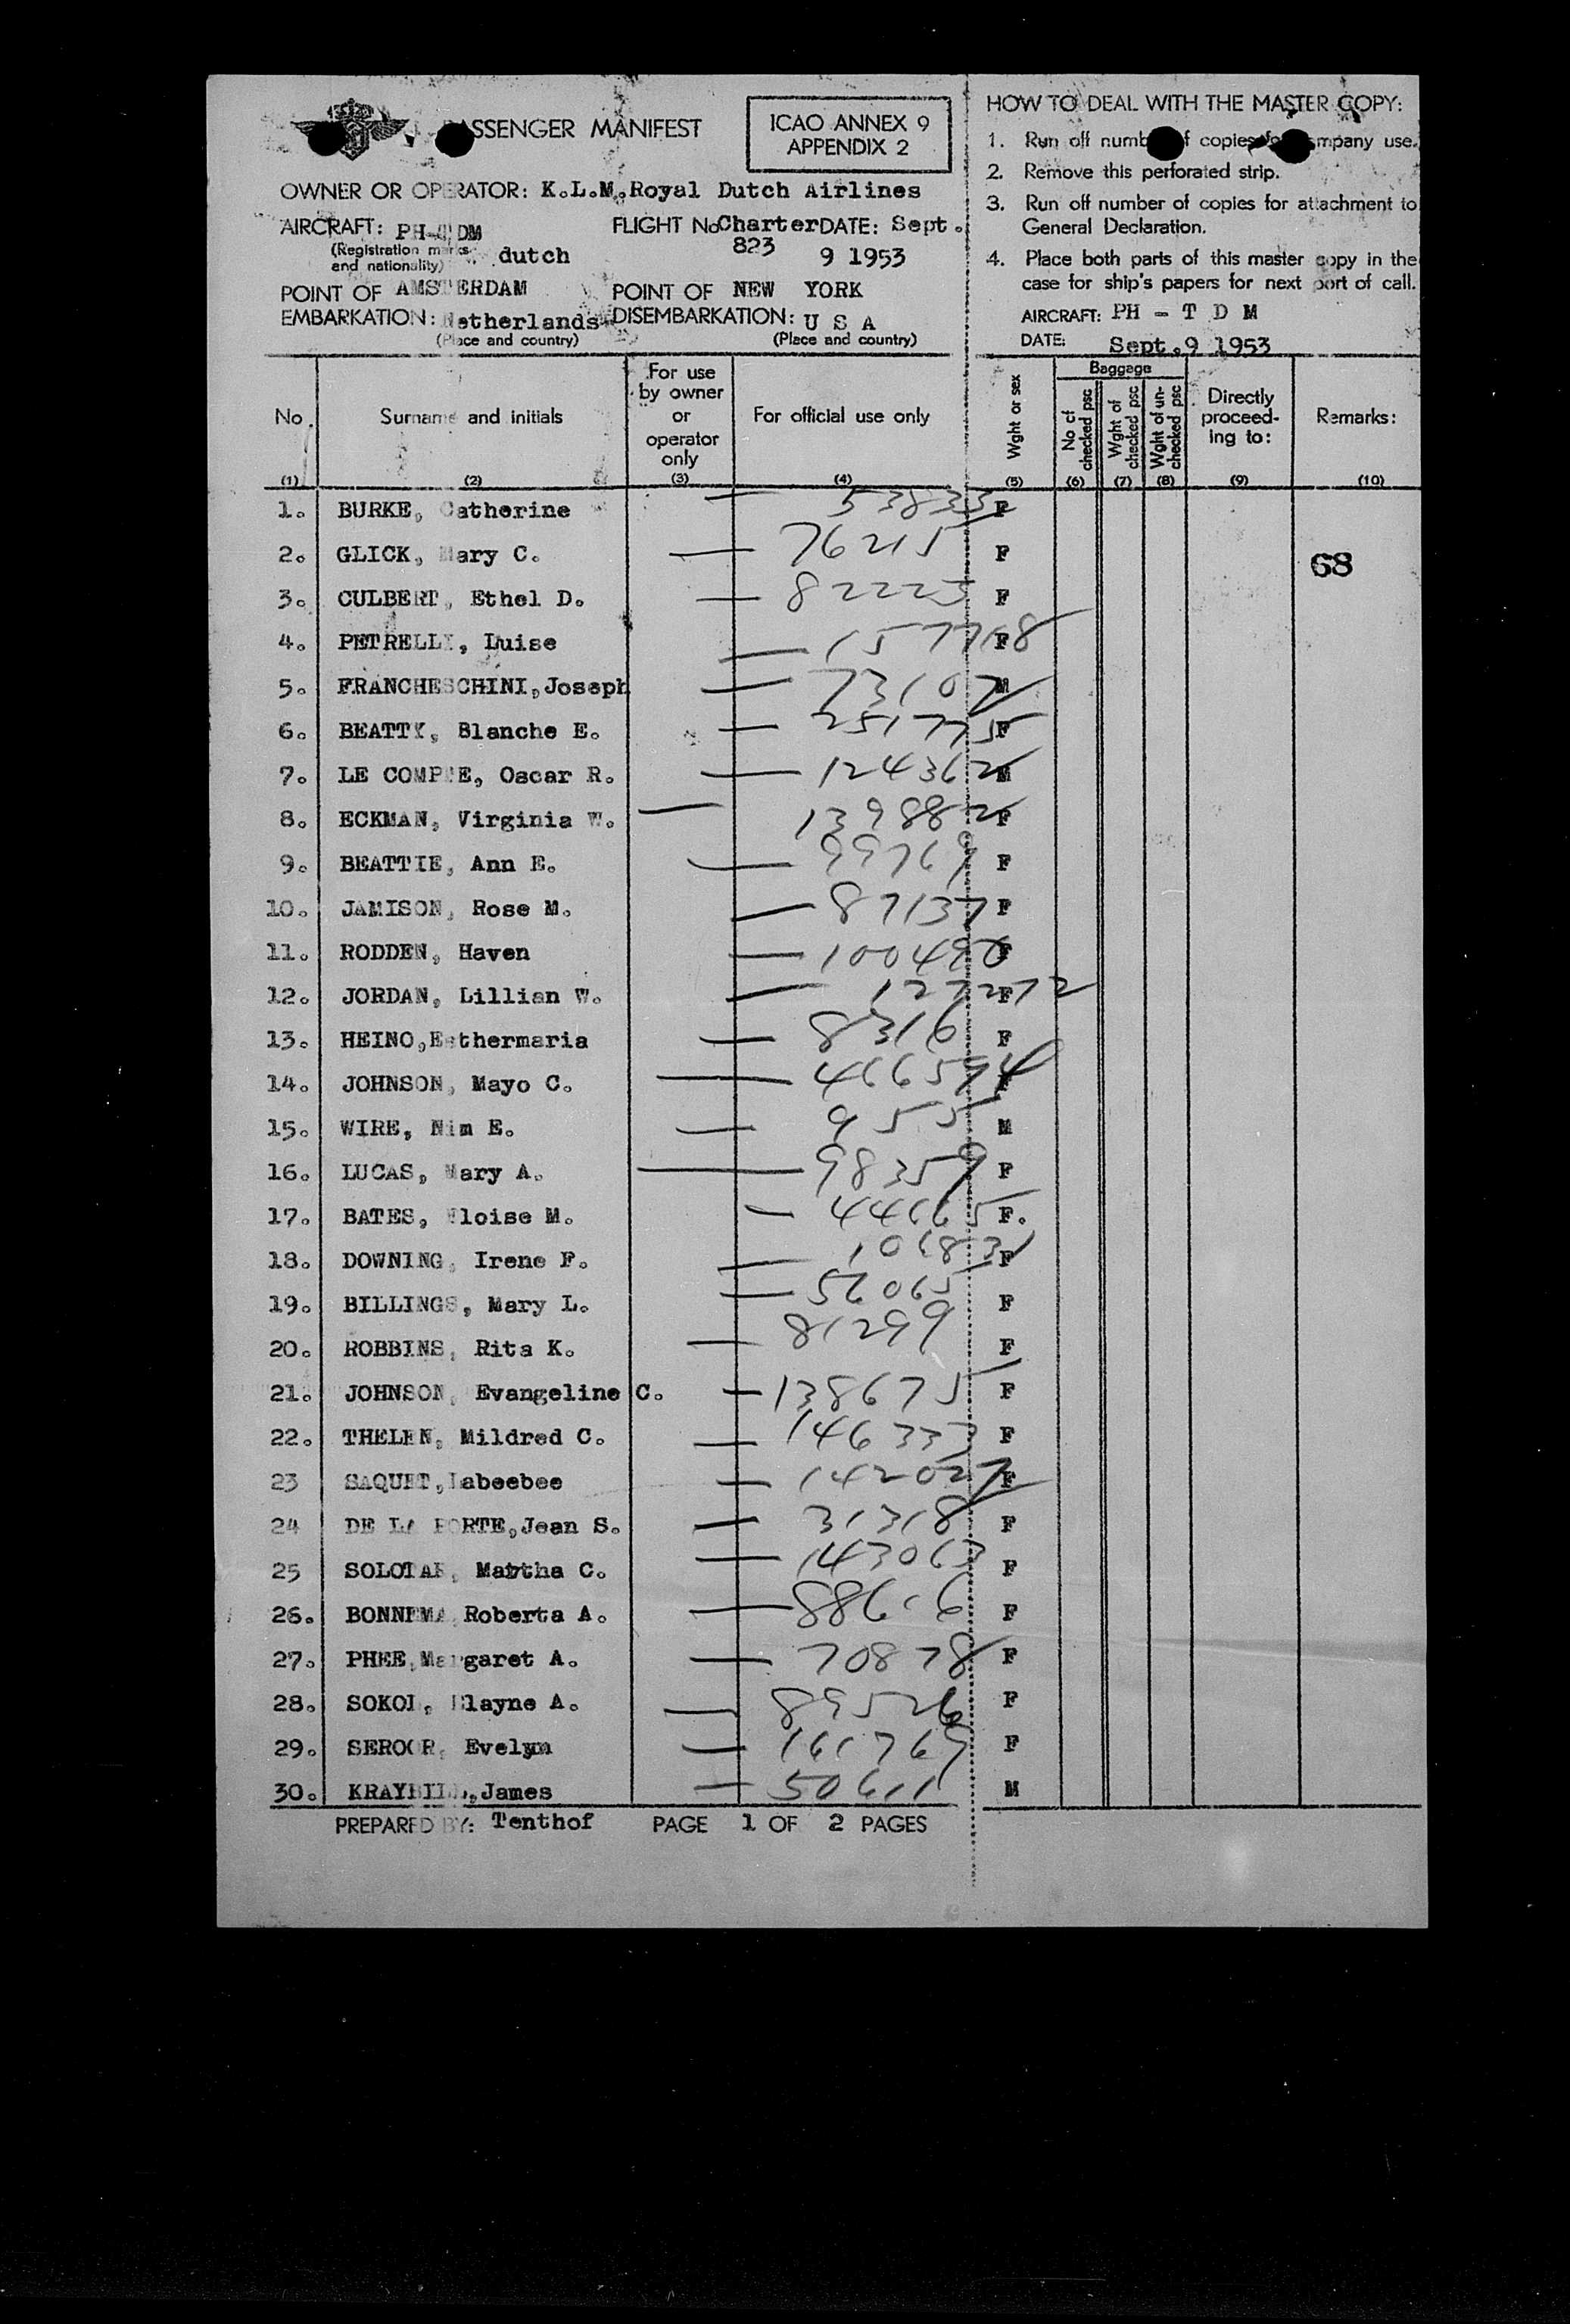 PASSENGER MANIFEST
ICAO ANNEX 9
APPENDIX 2
OWNER OR OPERATOR: K.L.M.Royal Dutch Airlines
AIRCRAFT: PH-TDM
(Registration marks and nationality) dutch
FLIGHT No Charter 823 DATE: Sept. 9 1953
POINT OF EMBARKATION: AMSTERDAM Netherlands
(Place and country)
POINT OF DISEMBARKATION: NEW YORK U S A
(Place and country)
HOW TO DEAL WITH THE MASTER COPY:
1. Run off number of copies for company use.
2. Remove this perforated strip.
3. Run off number of copies for attachment to
General Declaration.
4. Place both parts of this master copy in the
case for ship's papers for next port of call.
AIRCRAFT: PH - T D M
DATE: Sept.9 1953
No. (1) Surname and initials (2) For use by owner or operator only (3) For official use only (4) Wght or sex (5) Baggage No of checked psc (6) Wght of checked psc (7) Wght of un-checked psc (8) Directly proceed-ing to: (9) Remarks: (10)
1. BURKE, Catherine — 53833 F
2. GLICK, Mary C. — 76215 F
68
3. CULBERT, Ethel D. — 82223 F
4. PETRELLI, Luise — 157768 F
5. FRANCHESCHINI,Joseph — 73107 M
6. BEATTY, Blanche E. — 251775 F
7. LE COMPTE, Oscar R. — 124362 M
8. ECKMAN, Virginia W. — 139882 F
9. BEATTIE, Ann E. — 99769 F
10. JAMISON, Rose M. — 87137 F
11. RODDEN, Haven — F
12. JORDAN, Lillian W. — 127272 F
13. HEINO,Esthermaria — 8316 F
14. JOHNSON, Mayo C. — 466594 F
15. WIRE, Nim E. — 955 M
16. LUCAS, Mary A. — 98359 F
17. BATES, Eloise M. — 44665 F.
18. DOWNING, Irene F. — F
19. BILLINGS, Mary L. — 56065 F
20. ROBBINS, Rita K. — 81299 F
21. JOHNSON, Evangeline C. — 138675 F
22. THELEN, Mildred C. — 146333 F
23 SAQUET,Labeebee — 142027 F
24 DE LA PORTE,Jean S. — 31318 F
25 SOLOTAR, Martha C. — 143063 F
26. BONNEMA Roberta A. — 88616 F
27. PHEE,Margaret A. — 70878 F
28. SOKOL, Elayne A. — 89526 F
29. SEROOR, Evelyn — 161769 F
30. KRAYBILL,James — 50611 M
PREPARED BY: Tenthof PAGE 1 OF 2 PAGES